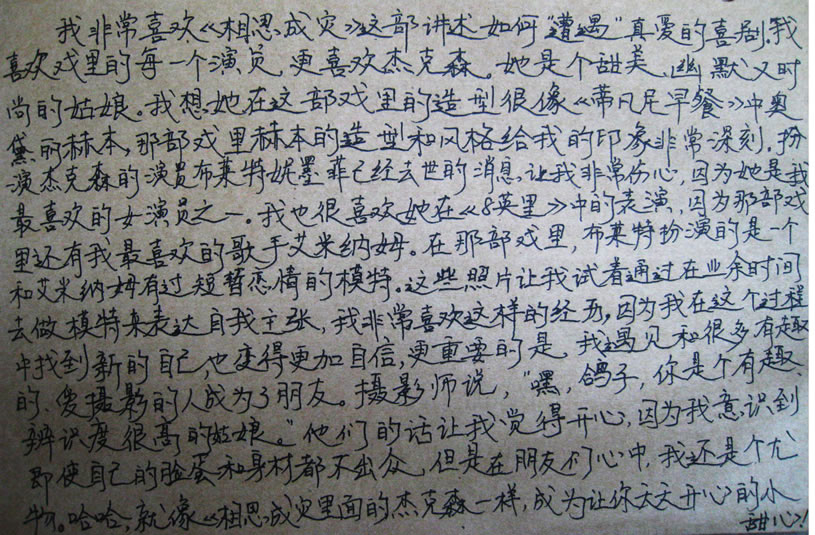 我非常喜欢《相思成灾》这部讲述如何“遭遇”真爱的喜剧.我
喜欢戏里的每一个演员,更喜欢杰克森。她是个甜美、幽默又时
尚的姑娘。我想她在这部戏里的造型很像《蒂凡尼早餐》中奥
黛丽赫本,那部戏里赫本的造型和风格给我的印象非常深刻.扮
演杰克森的演员布莱特妮墨菲已经去世的消息,让我非常伤心,因为她是我
最喜欢的女演员之一。我也很喜欢她在《8英里》中的表演,因为那部戏
里还有我最喜欢的歌手艾米纳姆。在那部戏里,布莱特扮演的是一个
和艾米纳姆有过短暂恋情的模特。这些照片让我试着通过在业余时间
去做模特来表达自我主张,我非常喜欢这样的经历,因为我在这个过程
中找到新的自己,也变得更加自信,更重要的是,我遇见和很多有趣
的、爱摄影的人成为了朋友。摄影师说,“嘿,鸽子,你是个有趣、
辨识度很高的姑娘。”他们的话让我觉得开心,因为我意识到
即使自己的脸蛋和身材都不出众,但是在朋友们心中,我还是个尤
物。哈哈,就像《相思成灾里面的杰克森一样,成为让你天天开心的小
甜心!